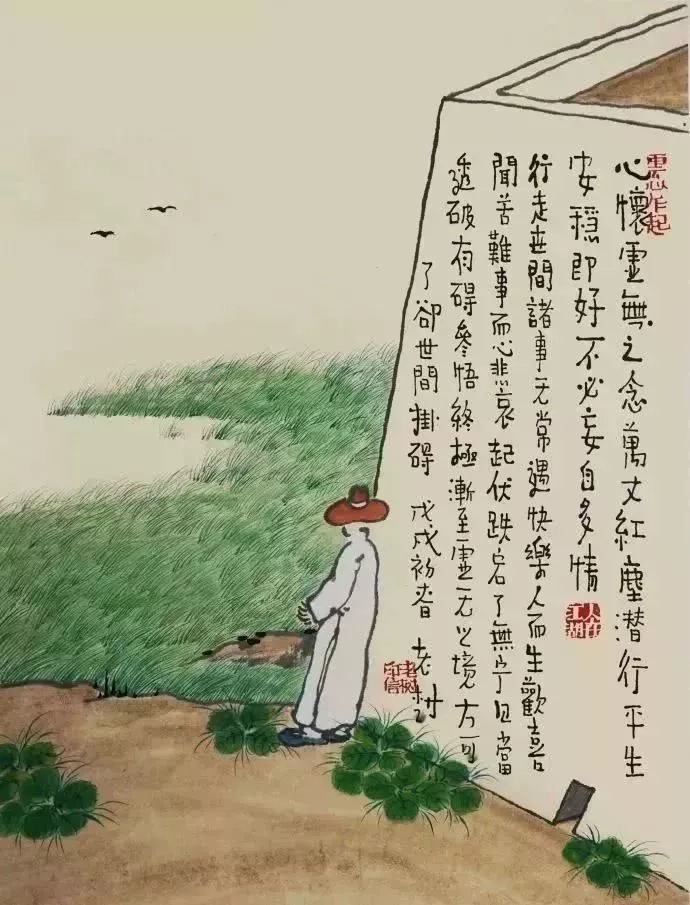 心懷虛無之念萬丈紅塵潜行平生
安穩即好不必妄自多情
人在江湖
行走世間諸事无常遇快樂人而生歡喜
聞苦難事而心悲哀起伏跌宕了無宁日當
透破有碍參悟終極漸至虛无之境方可
了卻世間掛碍 戊戌初春 老树